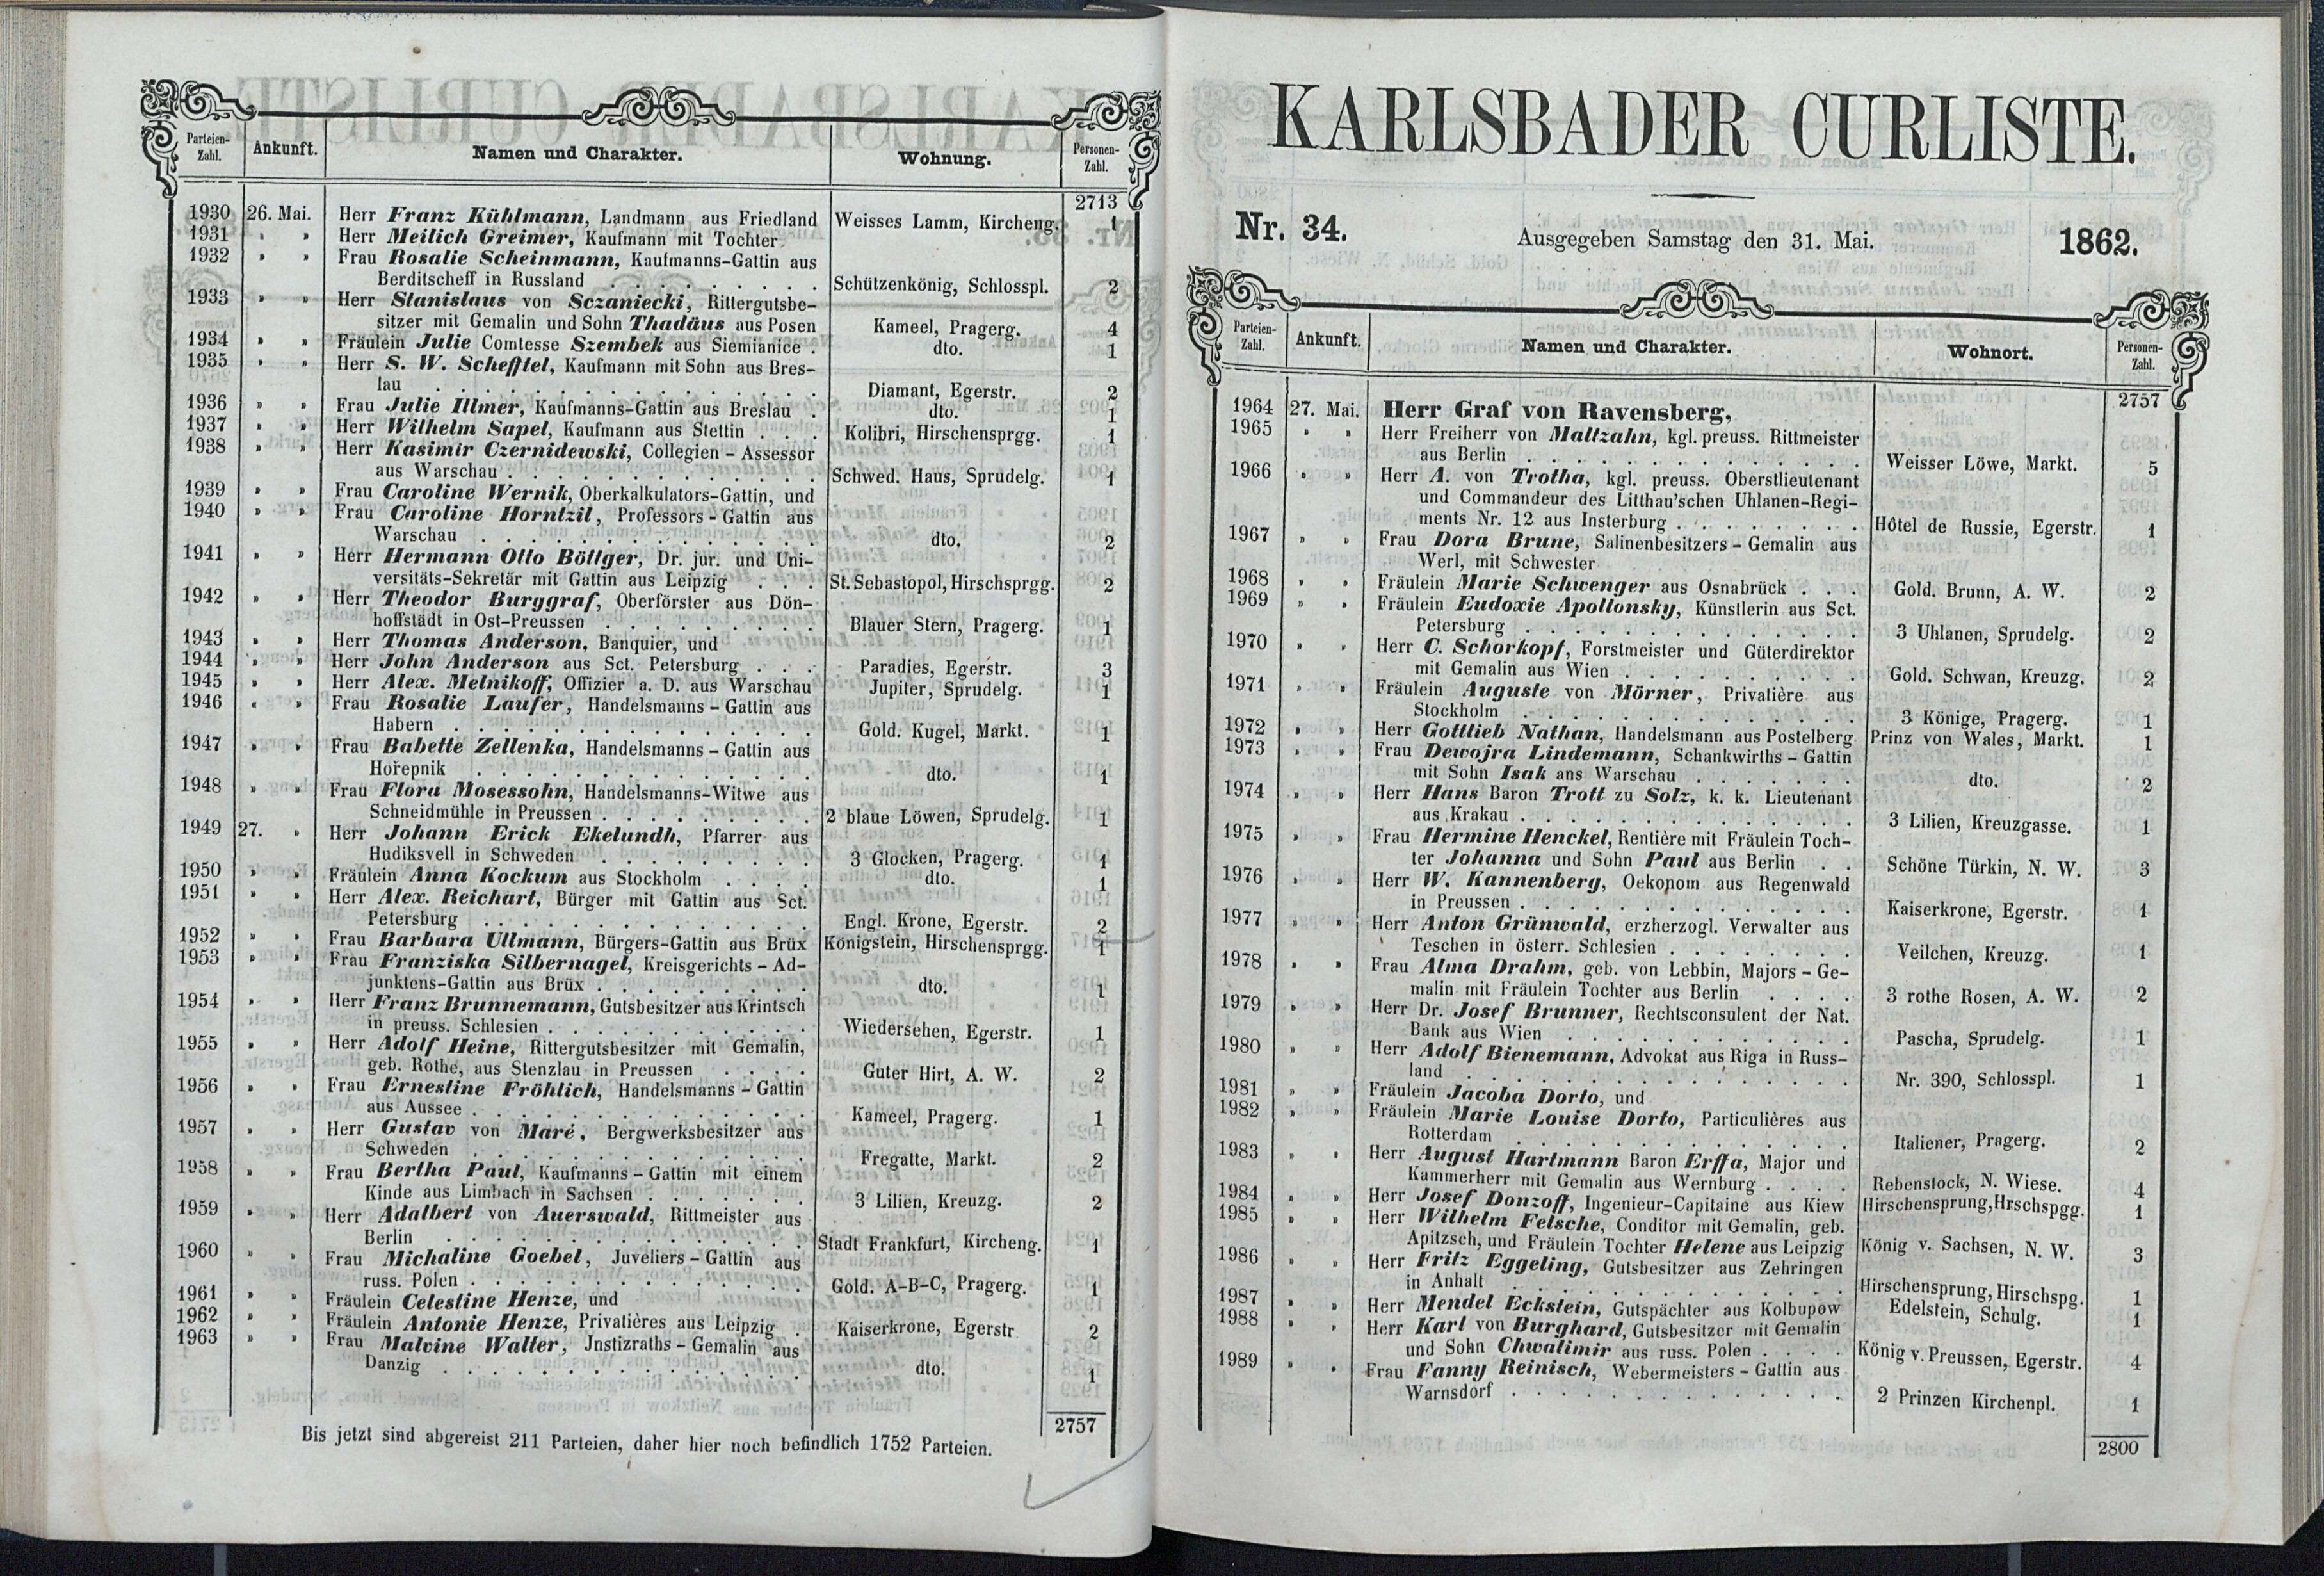 Parteien-Zahl. Ankunft. Namen und Charakter. Wohnung. Personen-Zahl.
2713
1930 26. Mai. Herr Franz Kühlmann, Landmann aus Friedland Weisses Lamm, Kircheng. 1
1931 " " Herr Meilich Greimer, Kaufmann mit Tochter
1932 " " Frau Rosalie Scheinmann, Kaufmanns-Gattin aus
Berditscheff in Russland . . . . . . . . . Schützenkönig, Schlosspl. 2
1933 " " Herr Stanislaus von Sczaniecki, Rittergutsbe-
sitzer mit Gemalin und Sohn Thadäus aus Posen Kameel, Pragerg. 4
1934 " " Fräulein Julie Comtesse Szembek aus Siemianice . dto. 1
1935 " " Herr S. W. Schefftel, Kaufmann mit Sohn aus Bres-
lau . . . . . . . . . . . . . . . . Diamant, Egerstr. 2
1936 " " Frau Julie Illmer, Kaufmanns-Gattin aus Breslau . dto. 1
1937 " " Herr Wilhelm Sapel, Kaufmann aus Stettin . . . Kolibri, Hirschensprgg. 1
1938 " " Herr Kasimir Czernidewski, Collegien - Assessor
aus Warschau . . . . . . . . . . . . . Schwed. Haus, Sprudelg. 1
1939 " " Frau Caroline Wernik, Oberkalkulators-Gattin, und
1940 " " Frau Caroline Horntzil, Professors - Gattin aus
Warschau . . . . . . . . . . . . . . dto. 2
1941 " " Herr Hermann Otto Böttger, Dr. jur. und Uni-
versitäts-Sekretär mit Gattin aus Leipzig . . . St. Sebastopol, Hirschsprgg. 2
1942 " " Herr Theodor Burggraf, Oberförster aus Dön-
hoffstädt in Ost-Preussen . . . . . . . . . Blauer Stern, Pragerg. 1
1943 " " Herr Thomas Anderson, Banquier, und
1944 " " Herr John Anderson aus Sct. Petersburg . . . Paradies, Egerstr. 3
1945 " " Herr Alex. Melnikoff, Offizier a. D. aus Warschau Jupiter, Sprudelg. 1
1946 " " Frau Rosalie Laufer, Handelsmanns - Gattin aus
Habern . . . . . . . . . . . . . . . Gold. Kugel, Markt. 1
1947 " " Frau Babette Zellenka, Handelsmanns - Gattin aus
Hořepnik . . . . . . . . . . . . . . dto. 1
1948 " " Frau Flora Mosessohn, Handelsmanns-Witwe aus
Schneidmühle in Preussen . . . . . . . . . 2 blaue Löwen, Sprudelg. 1
1949 27. " Herr Johann Erick Ekelundh, Pfarrer aus
Hudiksvell in Schweden . . . . . . . . . 3 Glocken, Pragerg. 1
1950 " " Fräulein Anna Kockum aus Stockholm . . . . dto. 1
1951 " " Herr Alex. Reichart, Bürger mit Gattin aus Sct.
Petersburg . . . . . . . . . . . . . . Engl. Krone, Egerstr. 2
1952 " " Frau Barbara Ullmann, Bürgers-Gattin aus Brüx Königstein, Hirschensprgg. 1
1953 " " Frau Franziska Silbernagel, Kreisgerichts - Ad-
junktens-Gattin aus Brüx . . . . . . . . . dto. 1
1954 " " Herr Franz Brunnemann, Gutsbesitzer aus Krintsch
in preuss. Schlesien . . . . . . . . . . . Wiedersehen, Egerstr. 1
1955 " " Herr Adolf Heine, Rittergutsbesitzer mit Gemalin,
geb. Rothe, aus Stenzlau in Preussen . . . . Guter Hirt, A. W. 2
1956 " " Frau Ernestine Fröhlich, Handelsmanns - Gattin
aus Aussee . . . . . . . . . . . . . . Kameel, Pragerg. 1
1957 " " Herr Gustav von Maré, Bergwerksbesitzer aus
Schweden . . . . . . . . . . . . . . Fregatte, Markt. 2
1958 " " Frau Bertha Paul, Kaufmanns - Gattin mit einem
Kinde aus Limbach in Sachsen . . . . . . . 3 Lilien, Kreuzg. 2
1959 " " Herr Adalbert von Auerswald, Rittmeister aus
Berlin . . . . . . . . . . . . . . . Stadt Frankfurt, Kircheng. 1
1960 " " Frau Michaline Goebel, Juveliers - Gattin aus
russ. Polen . . . . . . . . . . . . . . Gold. A-B-C, Pragerg. 1
1961 " " Fräulein Celestine Henze, und
1962 " " Fräulein Antonie Henze, Privatières aus Leipzig . Kaiserkrone, Egerstr 2
1963 " " Frau Malvine Walter, Jnstizraths - Gemalin aus
Danzig . . . . . . . . . . . . . . . dto. 1
2757
Bis jetzt sind abgereist 211 Parteien, daher hier noch befindlich 1752 Parteien.
KARLSBADER CURLISTE.
Nr. 34. Ausgegeben Samstag den 31. Mai. 1862.
Parteien-Zahl. Ankunft. Namen und Charakter. Wohnort. Personen-Zahl.
2757
1964 27. Mai. Herr Graf von Ravensberg,
1965 " " Herr Freiherr von Maltzahn, kgl. preuss. Rittmeister
aus Berlin . . . . . . . . . . . . . . Weisser Löwe, Markt. 5
1966 " " Herr A. von Trotha, kgl. preuss. Oberstlieutenant
und Commandeur des Litthau'schen Uhlanen-Regi-
ments Nr. 12 aus Insterburg . . . . . . . . Hôtel de Russie, Egerstr. 1
1967 " " Frau Dora Brune, Salinenbesitzers - Gemalin aus
Werl, mit Schwester
1968 " " Fräulein Marie Schwenger aus Osnabrück . . . Gold. Brunn, A. W. 2
1969 " " Fräulein Eudoxie Apollonsky, Künstlerin aus Sct.
Petersburg . . . . . . . . . . . . . . 3 Uhlanen, Sprudelg. 2
1970 " " Herr C. Schorkopf, Forstmeister und Güterdirektor
mit Gemalin aus Wien . . . . . . . . . . Gold. Schwan, Kreuzg. 2
1971 " " Fräulein Auguste von Mörner, Privatière aus
Stockholm . . . . . . . . . . . . . . 3 Könige, Pragerg. 1
1972 " " Herr Gottlieb Nathan, Handelsmann aus Postelberg Prinz von Wales, Markt. 1
1973 " " Frau Dewojra Lindemann, Schankwirths - Gattin
mit Sohn Isak ans Warschau . . . . . . . dto. 2
1974 " " Herr Hans Baron Trott zu Solz, k. k. Lieutenant
aus Krakau . . . . . . . . . . . . . . 3 Lilien, Kreuzgasse. 1
1975 " " Frau Hermine Henckel, Rentière mit Fräulein Toch-
ter Johanna und Sohn Paul aus Berlin . . Schöne Türkin, N. W. 3
1976 " " Herr W. Kannenberg, Oekonom aus Regenwald
in Preussen . . . . . . . . . . . . . . Kaiserkrone, Egerstr. 1
1977 " " Herr Anton Grünwald, erzherzogl. Verwalter aus
Teschen in österr. Schlesien . . . . . . . . Veilchen, Kreuzg. 1
1978 " " Frau Alma Drahm, geb. von Lebbin, Majors - Ge-
malin mit Fräulein Tochter aus Berlin . . . . 3 rothe Rosen, A. W. 2
1979 " " Herr Dr. Josef Brunner, Rechtsconsulent der Nat.
Bank aus Wien . . . . . . . . . . . . Pascha, Sprudelg. 1
1980 " " Herr Adolf Bienemann, Advokat aus Riga in Russ-
land . . . . . . . . . . . . . . . . Nr. 390, Schlosspl. 1
1981 " " Fräulein Jacoba Dorto, und
1982 " " Fräulein Marie Louise Dorto, Particulières aus
Rotterdam . . . . . . . . . . . . . . Italiener, Pragerg. 2
1983 " " Herr August Hartmann Baron Erffa, Major und
Kammerherr mit Gemalin aus Wernburg . . . . Rebenstock, N. Wiese. 4
1984 " " Herr Josef Donzoff, Ingenieur-Capitaine aus Kiew Hirschensprung, Hrschspgg. 1
1985 " " Herr Wilhelm Felsche, Conditor mit Gemalin, geb.
Apitzsch, und Fräulein Tochter Helene aus Leipzig König v. Sachsen, N. W. 3
1986 " " Herr Fritz Eggeling, Gutsbesitzer aus Zehringen
in Anhalt . . . . . . . . . . . . . . Hirschensprung, Hirschspg. 1
1987 " " Herr Mendel Eckstein, Gutspächter aus Kolbupow Edelstein, Schulg. 1
1988 " " Herr Karl von Burghard, Gutsbesitzer mit Gemalin
und Sohn Chwalimir aus russ. Polen . . . . König v. Preussen, Egerstr. 4
1989 " " Frau Fanny Reinisch, Webermeisters - Gattin aus
Warnsdorf . . . . . . . . . . . . . . 2 Prinzen Kirchenpl. 1
2800